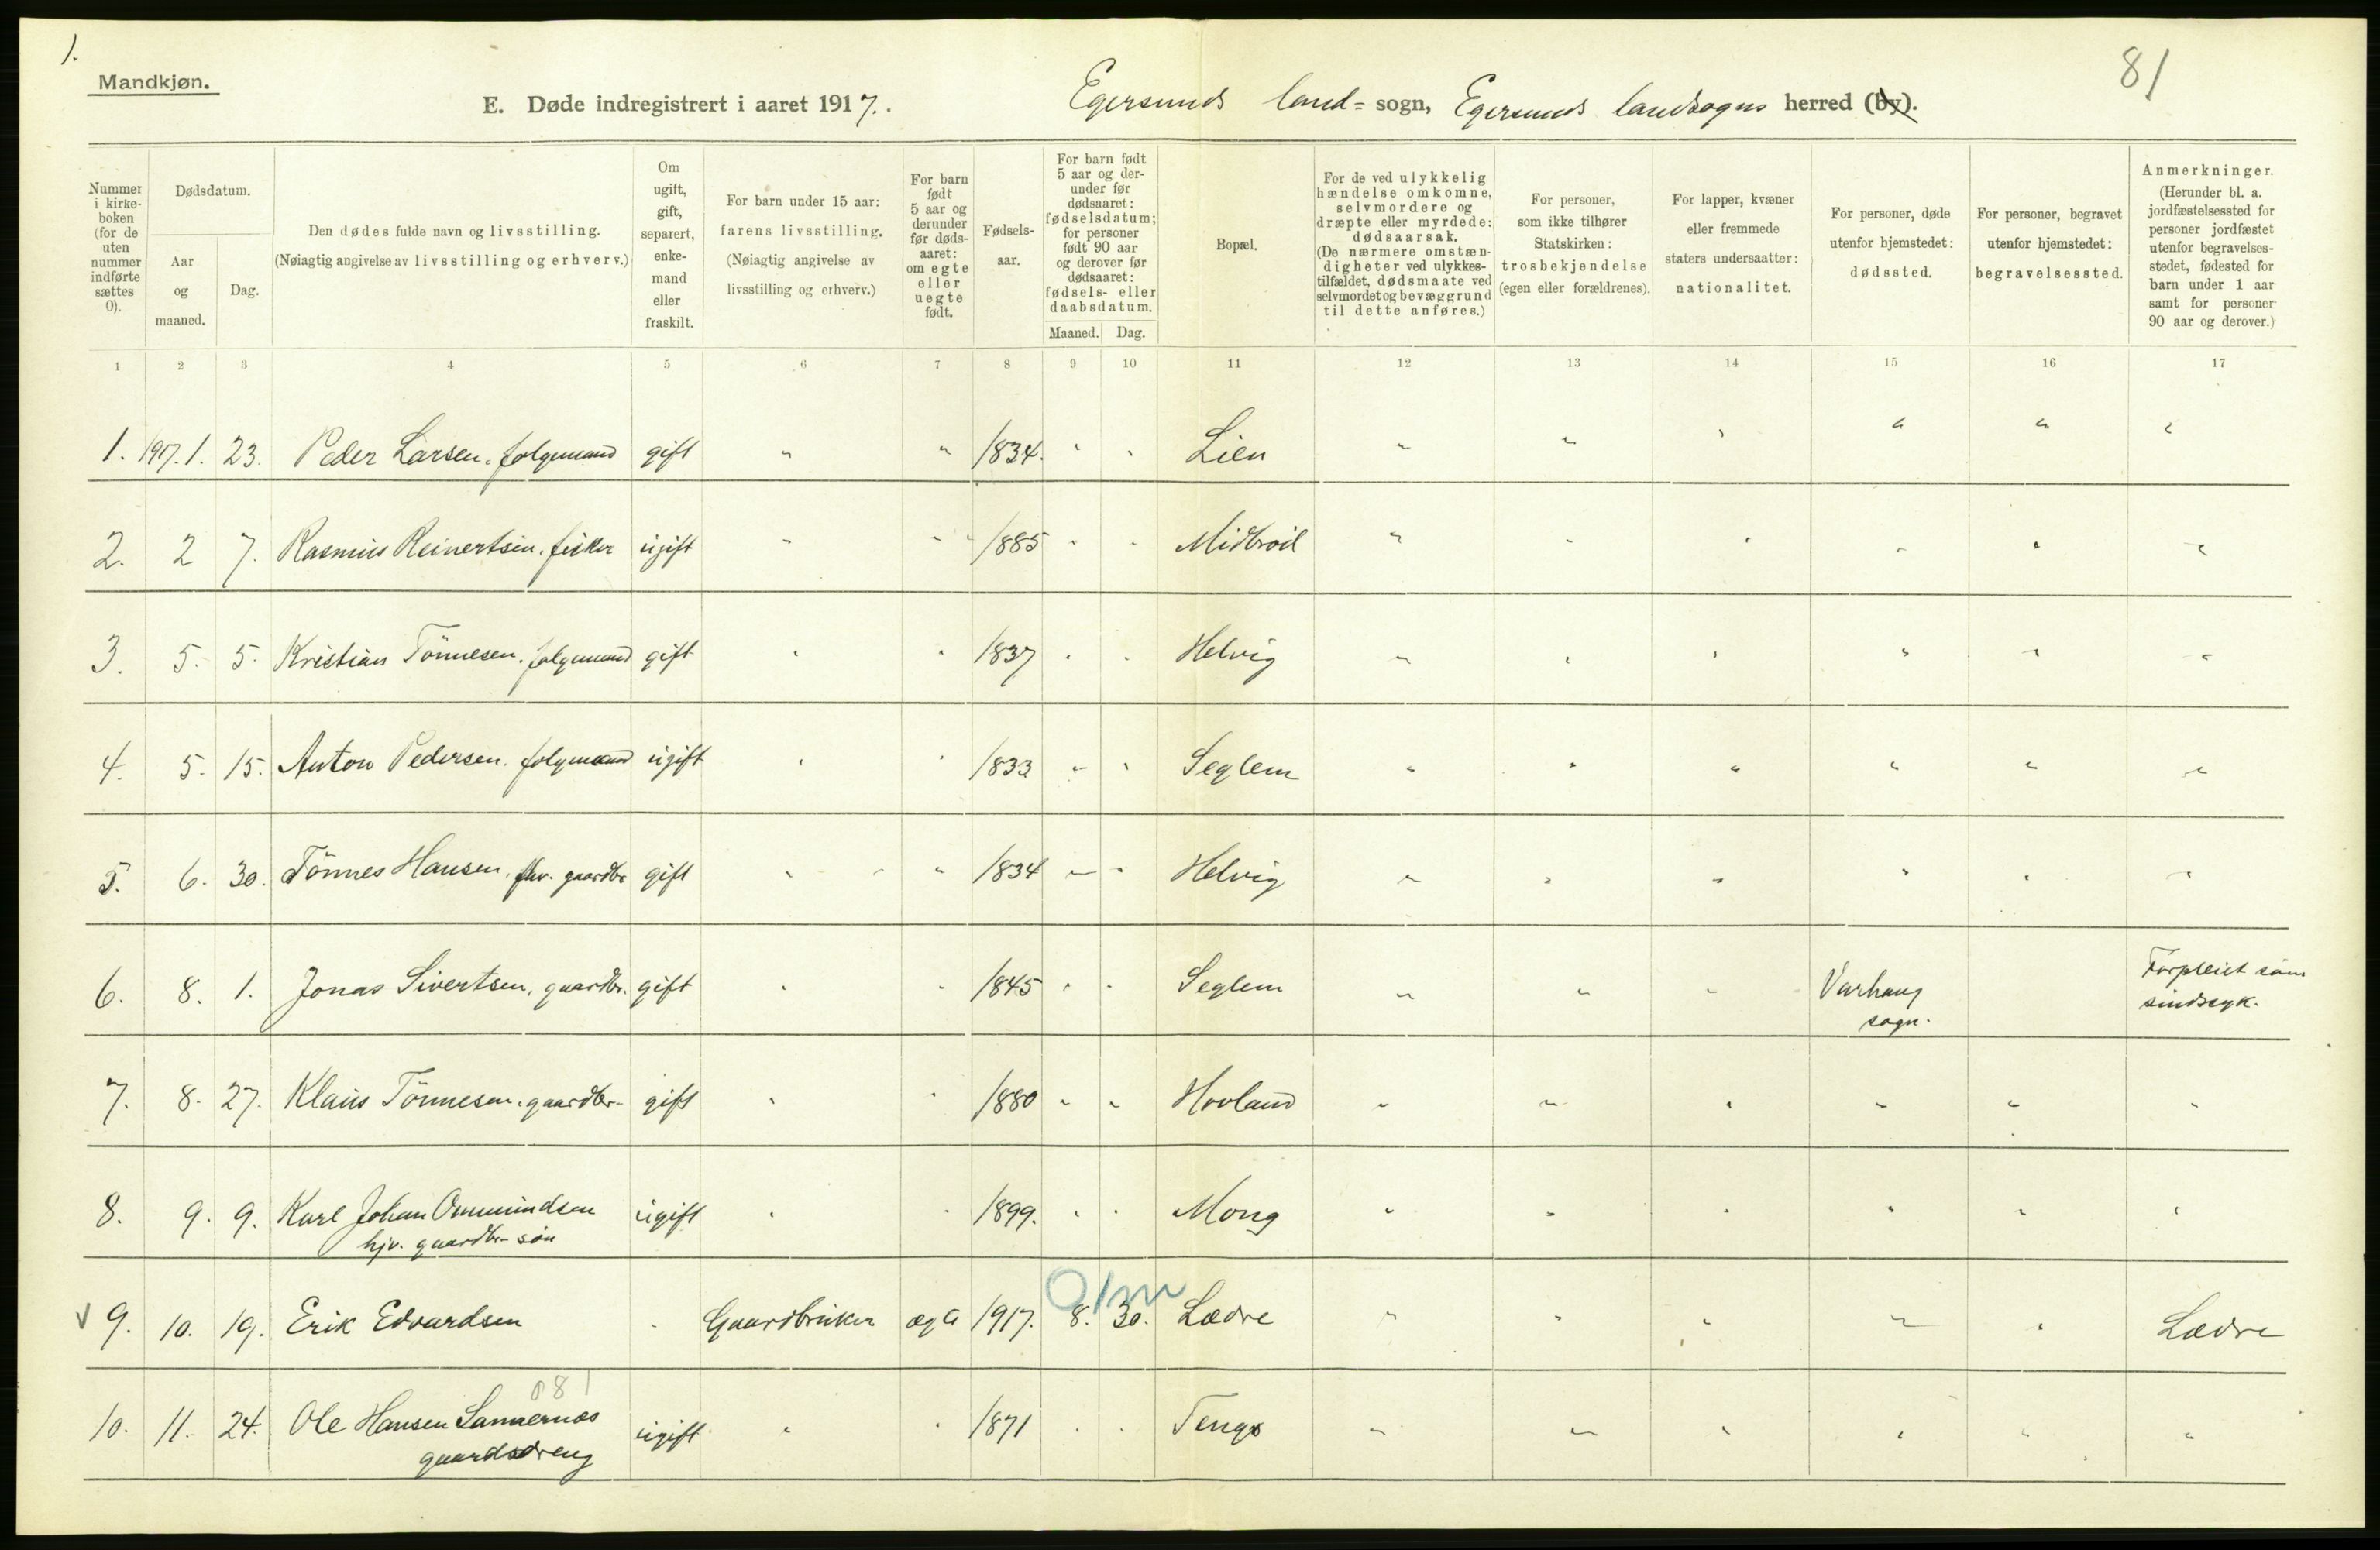 1.
Mandkjøn.
81
E. Døde indregistrert i aaret 1917. . Egersunds land= sogn, Egersunds landsogns herred (by).
Nummer i kirkeboken (for de uten nummer indførte sættes 0).
Dødsdatum.
Aar og maaned.
Dag.
Den dødes fulde navn og livsstilling.
(Nøiagtig angivelse av livsstilling og erhverv.)
Om ugift, gift, separert, enkemand eller fraskilt.
For barn under 15 aar: farens livsstilling.
(Nøiagtig angivelse av livsstilling og erhverv.)
For barn født 5 aar og derunder før dødsaaret: om egte eller uegte født.
Fødselsaar.
For barn født 5 aar og derunder før dødsaaret: fødselsdatum; for personer født 90 aar og derover før dødsaaret: fødsels- eller daabsdatum.
Maaned. Dag.
Bopæl.
For de ved ulykkelig hændelse omkomne, selvmordere og dræpte eller myrdede: dødsaarsak.
(De nærmere omstændigheter ved ulykkestilfældet, dødsmaate ved selvmordet og bevæggrund til dette anføres.)
For personer, som ikke tilhører Statskirken: trosbekjendelse (egen eller forældrenes).
For lapper, kvæner eller fremmede staters undersaatter: nationalitet.
For personer, døde utenfor hjemstedet: dødssted.
For personer, begravet utenfor hjemstedet: begravelsessted.
Anmerkninger.
(Herunder bl. a. jordfæstelsessted for personer jordfæstet utenfor begravelsesstedet, fødested for barn under 1 aar samt for personer 90 aar og derover.)
1 2 3 4 5 6 7 8 9 10 11 12 13 14 15 16 17
1. 1917.1. 23. Peder Larsen. folgemand gift " " 1834. " " Lien " " " " " "
2. 2 7. Rasmus Reinertsen. fisker ugift " " 1885 " " Midbrød " " " " " "
3. 5. 5. Kristian Tönnesen. folgemand gift " " 1837 " " Helvig " " " " " "
4. 5. 15. Anton Pedersen. folgemand ugift " " 1833 " " Seglem " " " " " "
5. 6. 30. Tönnes Hansen, fhv. gaardbr gift " " 1834 " " Helvig " " " " " "
6. 8. 1. Jonas Sivertsen, gaardbr. gift " " 1845 " " Seglem " " " Varhaug sogn. Forpleiet som sindssyk.
7. 8. 27. Klaus Tönnesen. gaardbr- gift " " 1880 " " Hovland " " " " " "
8. 9. 9. Karl Johan Ommundsen ugift " " 1899. " " Mong " " " " " "
hjv. gaardbr- søn
0 1m
9. 10. 19. Erik Edvardsen " Gaardbruker ægte 1917. 8. 30. Lædre " " " " " Lædre
081
10. 11. 24. Ole Hansen Sannernes ugift " " 1871 " " Tengs " " " " " "
gaardsdreng